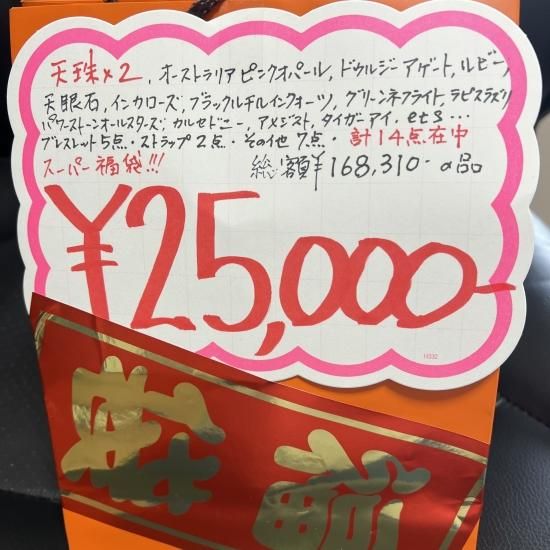 天珠×2, オーストラリアピンクオパール, ドゥルジーアゲート, ルビー,
天眼石, インカローズ, ブラックルチルクォーツ, グリーンネフライト, ラピスラズリ
パワーストーンオールスターズ, カルセドニー, アメジスト, タイガーアイ, ets…
ブレスレット5点・ストラップ2点・その他7点・計14点在中
スーパー福袋!!! 総額¥168,310-の品
¥25,000-